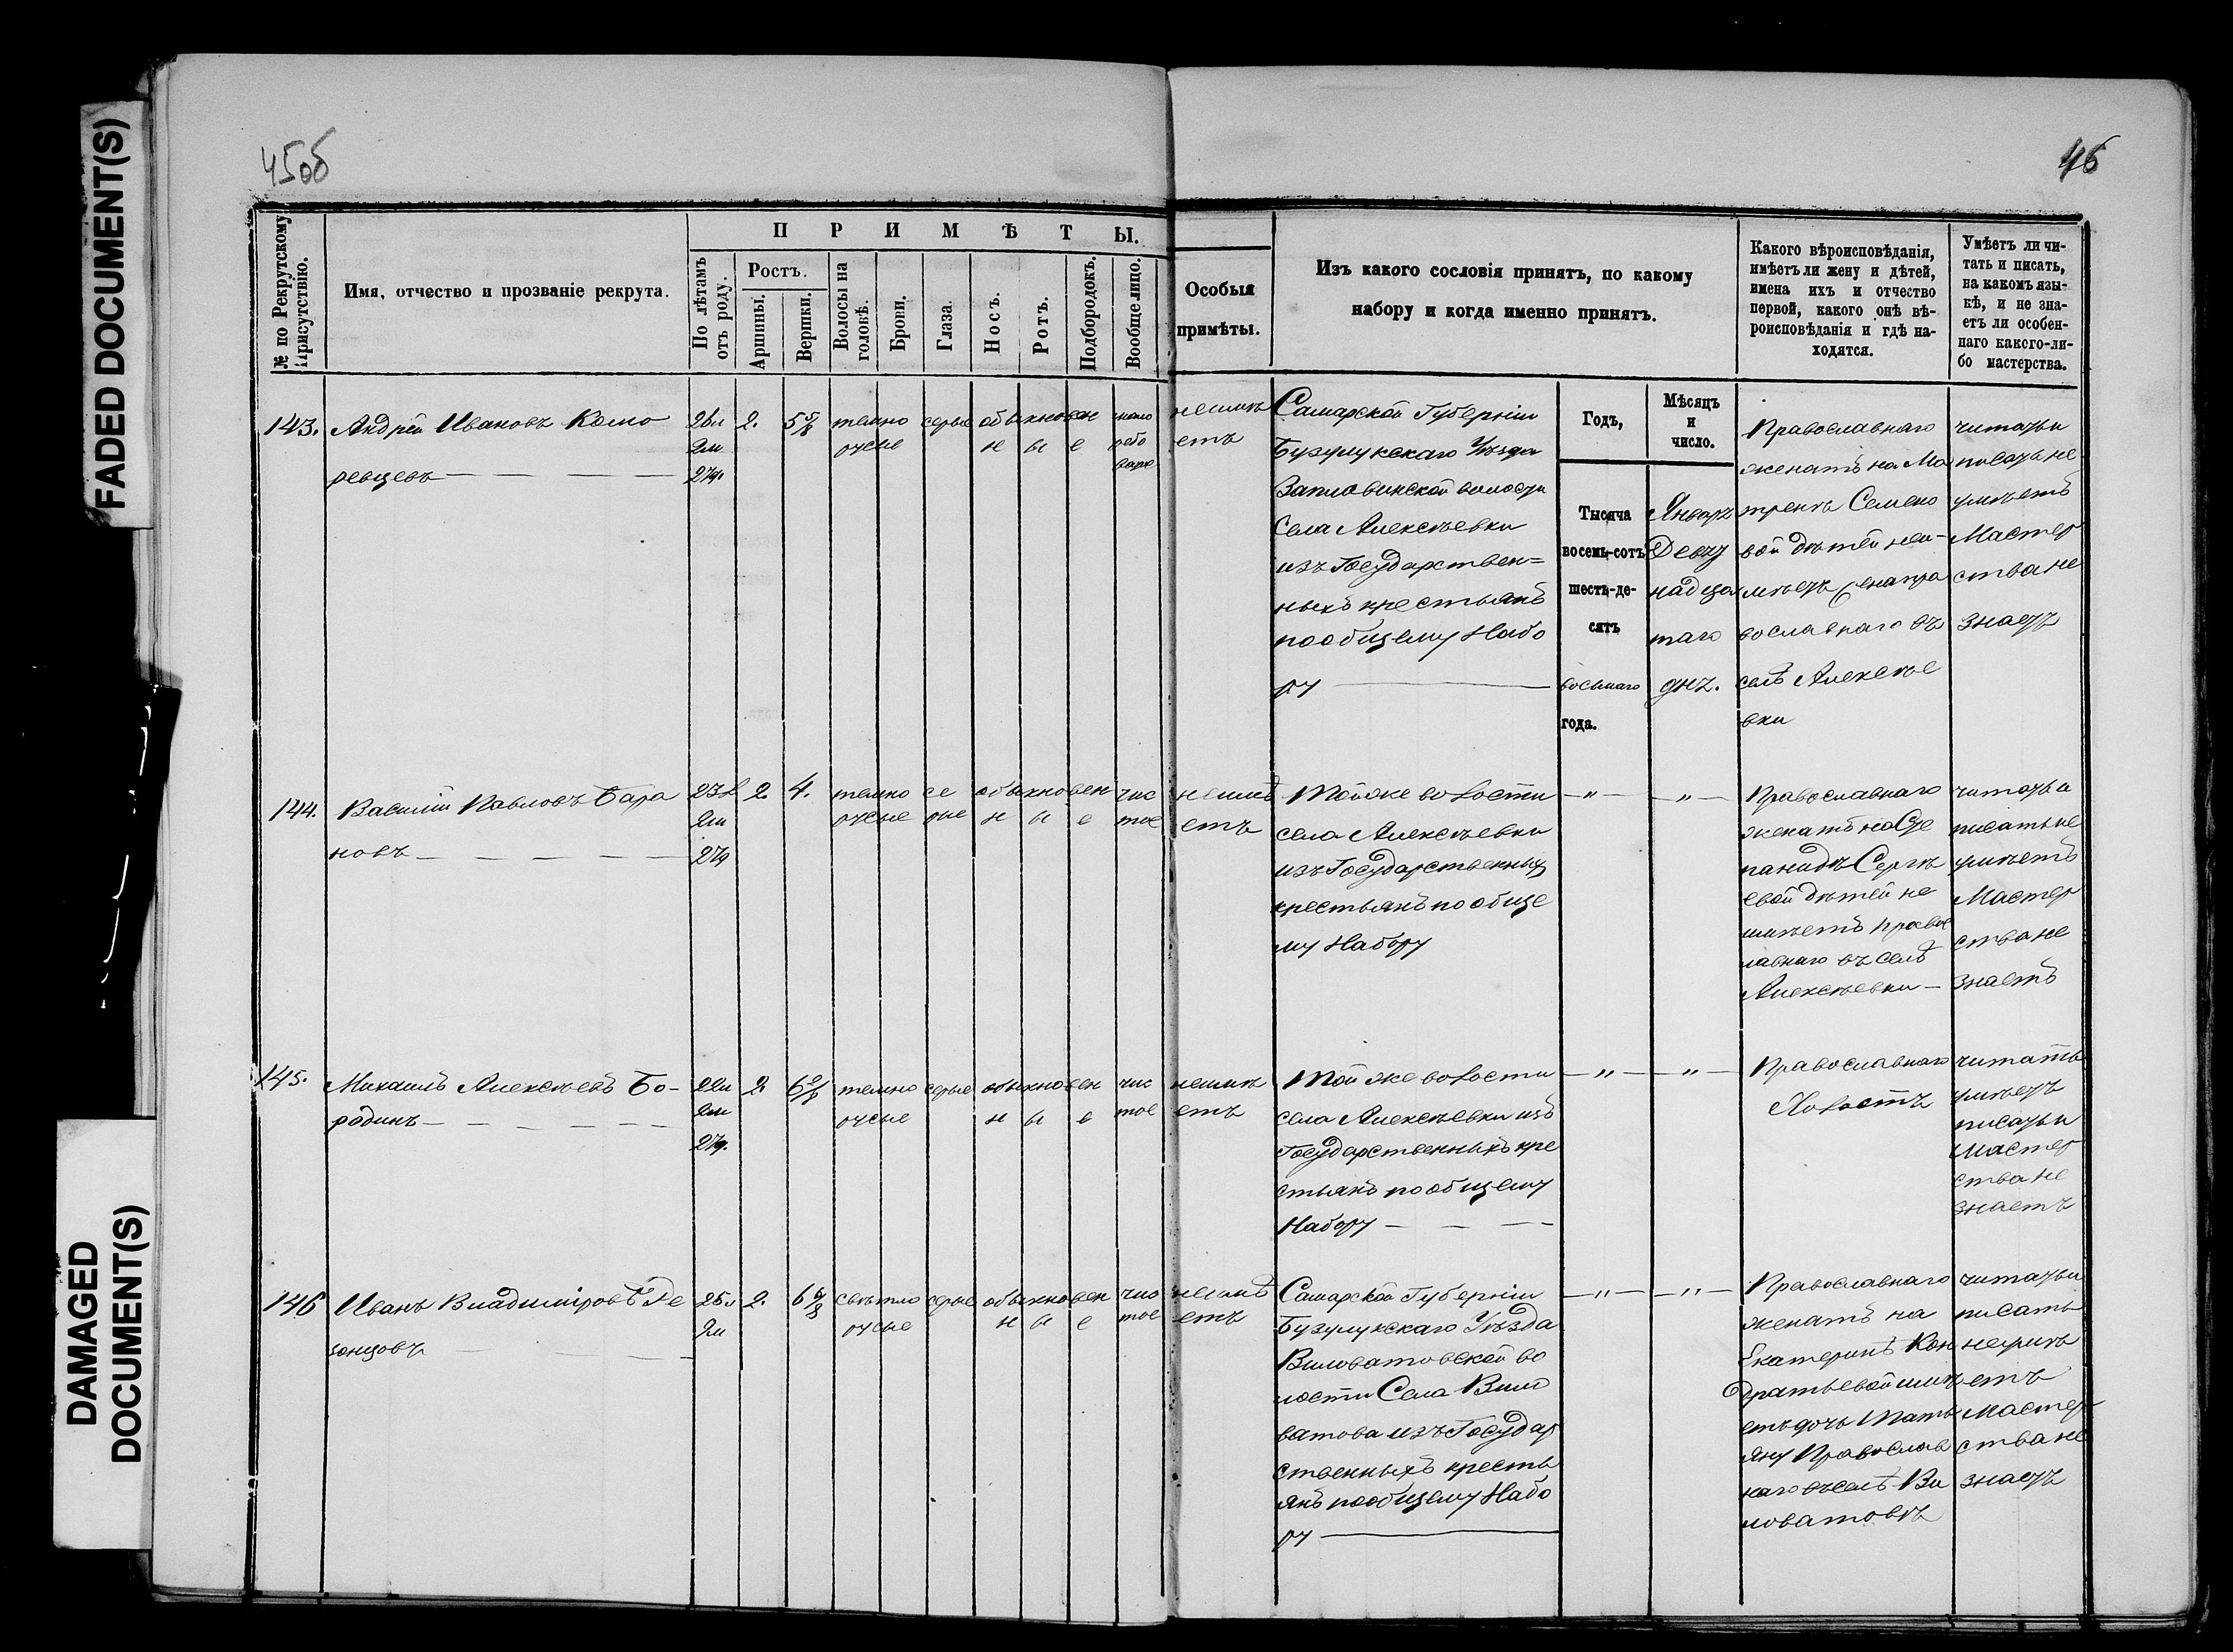 FADED DOCUMENT(S)
DAMAGED
DOCUMENT(S)
45об
46
№ по Рекрутскому
Присутствію.
Имя, отчество и прозваніе рекрута.
ПРИМѢТЫ.
По лѣтамъ
отъ роду.
Ростъ.
Аршины.
Вершки.
Волосы на
головѣ.
Брови.
Глаза.
Носъ.
Ротъ.
Подбородокъ.
Вообще лицо.
Особыя
примѣты.
Изъ какого сословія принятъ, по какому
набору и когда именно принятъ.
Какого вѣроисповѣданія,
имѣетъ ли жену и дѣтей,
имена ихъ и отчество
первой, какого онѣ вѣ-
роисповѣданія и гдѣ на-
ходятся.
Умѣетъ ли чи-
тать и писать,
на какомъ язы-
кѣ, и не зна-
етъ ли особен-
наго какого-ли-
бо мастерства.
143.
Андрей Ивановъ Комо
ревцевъ
26л
2м
27д.
2.
5 5/8
темно
русые
сѣрые
обыкновен
н ы е
неимѣ
етъ
Самарской Губерніи
Бузулукскаго Уѣзда
Запловинской волости
Села Алексѣевки
изъ Государствен=
ныхъ крестьянъ
пообщему Набо
ру
Годъ,
Тысяча
восемь-сотъ
шесть-де-
сятъ
восьмаго
года.
Мѣсяцъ
и
число.
Январь
Двѣ
надца
таго
дня.
Православнаго
женатъ на Ма
тренѣ Семено
вой дѣтей неи-
мѣетъ
вославнаго въ
селѣ Алексѣе
вки
читать и
писать не
умѣетъ
Мастер
ства не
знаетъ
144.
Василій Павловъ Бара
новъ
23л
2м
27д
2.
4.
темно
русые
сѣ
рые
обыкновен
н ы е
чис
тое
неимѣ
етъ
Той же волости
села Алексѣевки
изъ Государственныхъ
крестьянъ по обще
му Набору
— " —
— " —
Православнаго
женатъ на Сте
панидѣ Сергѣ
евой дѣтей не
имѣетъ правос
лавнаго въ селѣ
Алексѣевки —
читать и
писать не
умѣетъ
Мастер
ства не
знаетъ
145.
Михаилъ Алексѣевъ Бо-
родинъ
22л
2м
27д.
2.
темно
русые
сѣрые
обыкновен
н ы е
чис
тое
неимѣ
етъ
Той же волости
села Алексѣевки изъ
Государственныхъ кре
стьянъ по общему
Набору
— " —
— " —
Православнаго
Холостъ
читать
умѣетъ
писать и
Мастер
ства не
знаетъ
146
Иванъ Владиміровъ Ре
занцовъ
25л
2м
2.
свѣтло
русые
сѣрые
обыкновен
н ы е
чис
тое
неимѣ
етъ
Самарской Губерніи
Бузулукскаго Уѣзда
Виловатовской во
лости Села Вило
ватова изъ Государ
ственныхъ кресть
янъ пообщему Набо
ру
— " —
— " —
Православнаго
женатъ на
Екатеринѣ Кон
дратьевой имѣ
етъ дочь Тать
яну Православ
наго въ селѣ Ви
ловатовѣ
читать и
писать
не умѣ
етъ
Мастер
ства не
знаетъ